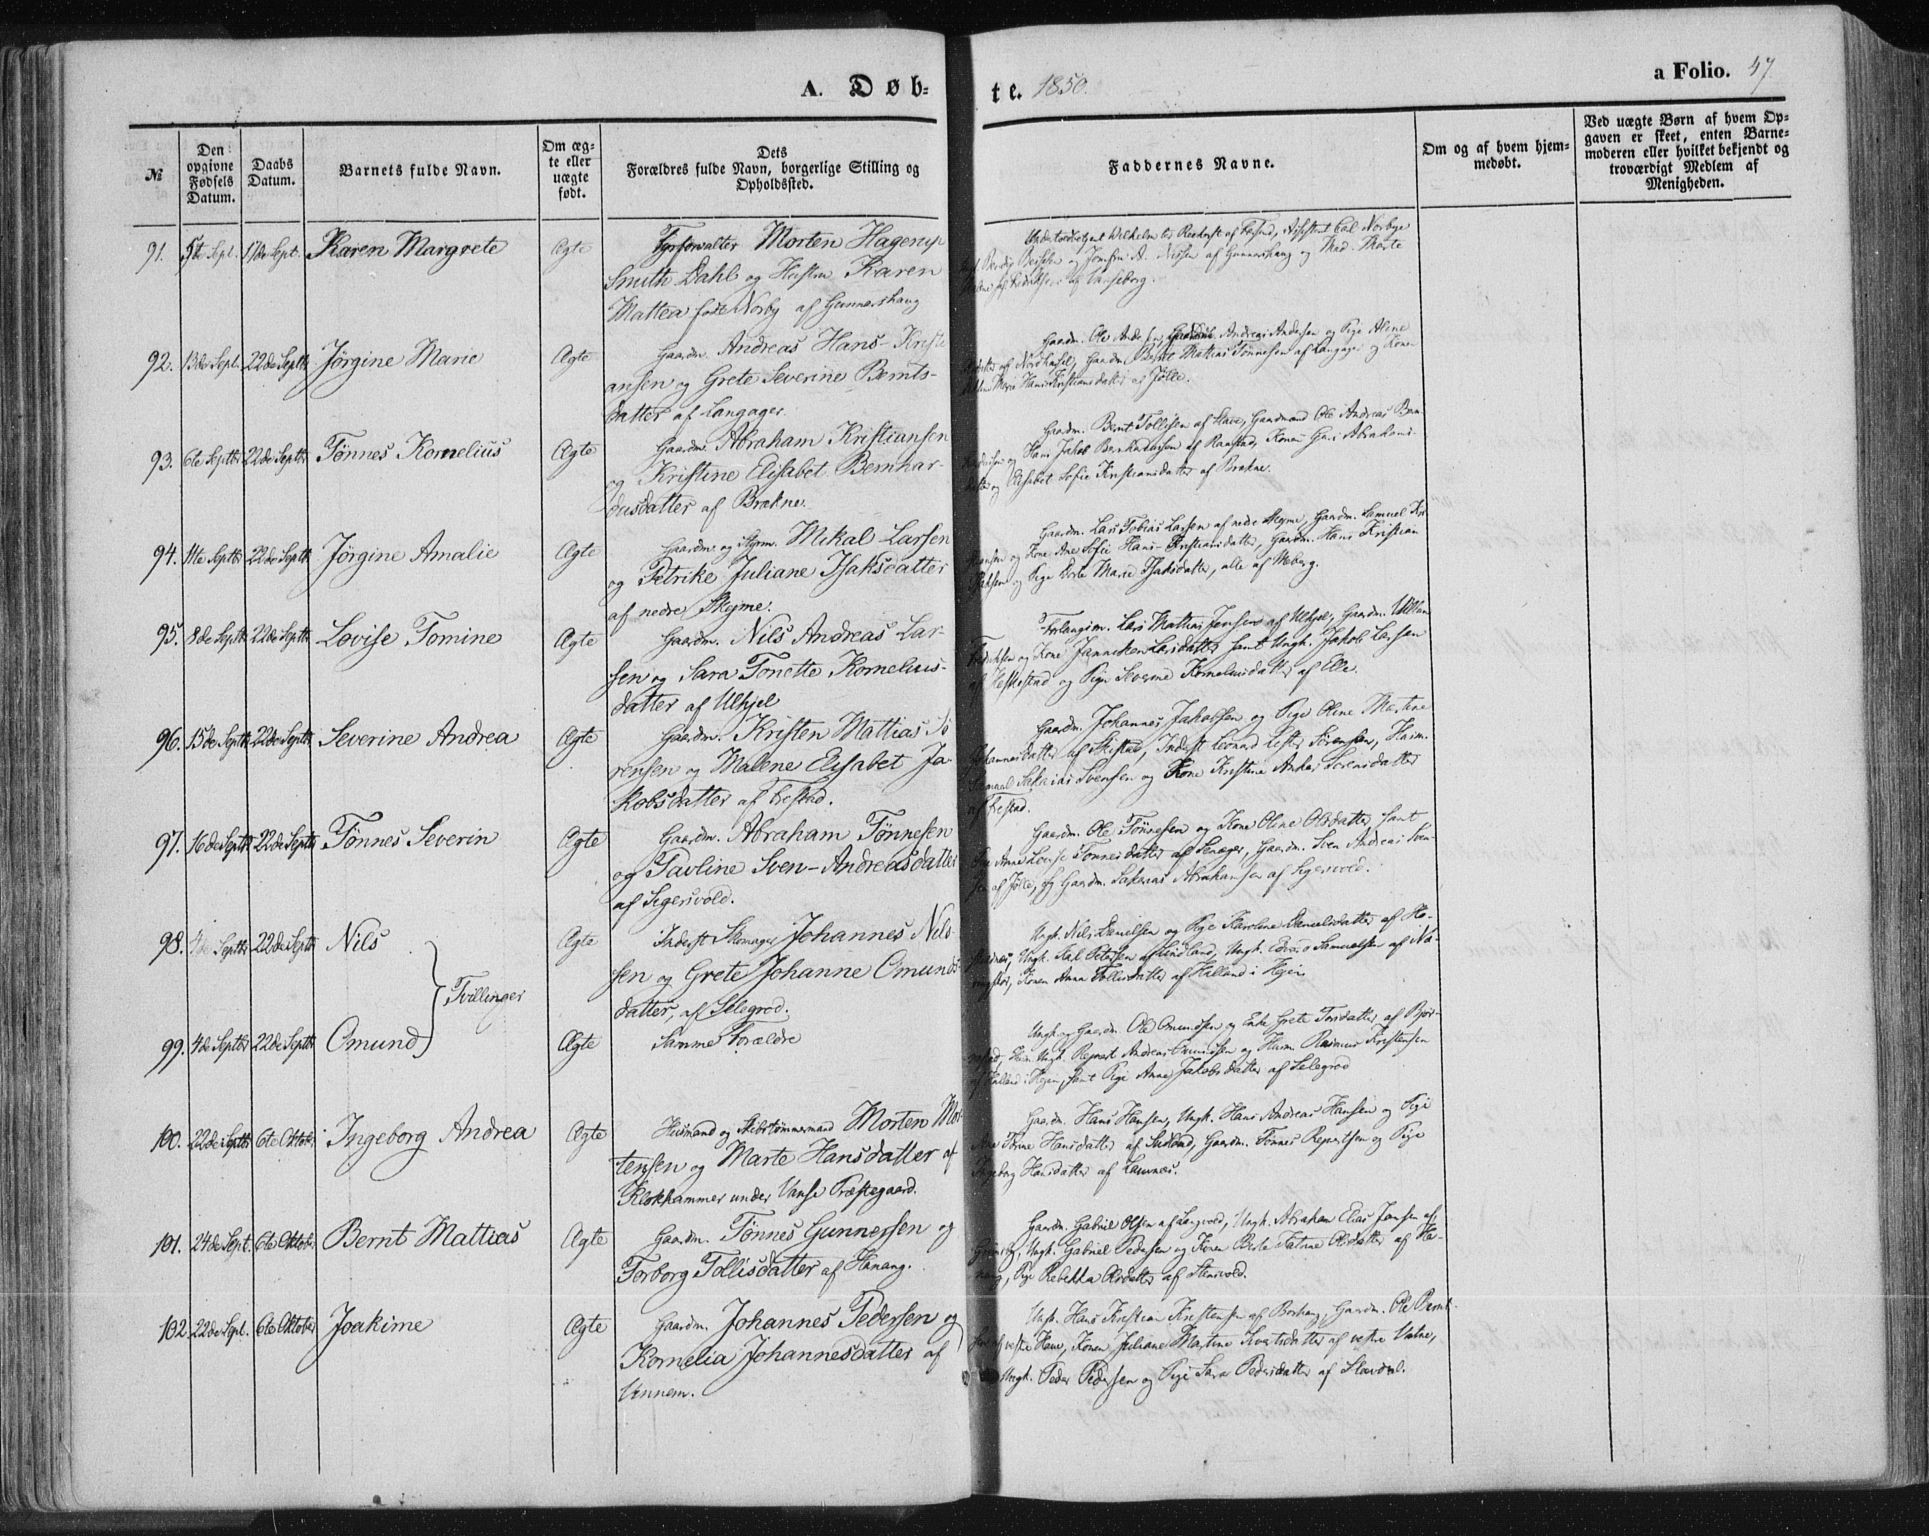 A. Døb-
te. 1850.
a Folio. 47
№
Den
opgivne
Fødsels
Datum.
Daabs
Datum.
Barnets fulde Navn.
Om æg-
te eller
uægte
født.
Dets
Forældres fulde Navn, borgerlige Stilling og
Opholdssted.
Faddernes Navne.
Om og af hvem hjem-
medøbt.
Ved uægte Børn af hvem Op-
gaven er skeet, enten Barne-
moderen eller hvilket bekjendt og
troværdigt Medlem af
Menigheden.
91. 5te Sept. 17de Sept. Karen Margrete Ægte Fyrforvalter Morten Hagerup
Smith Dahl og Hustru Karen
Mattea født Norby af Gunnarshaug
af Gunnarshaug og Mad. Marte
92. 13de Sept. 22de Septbr Jørgine Marie Ægte Gaardm. Andreas Hans-Kristi-
ansen og Grete Severine Bernts-
datter af Langager.
Gaardm. Ole Andersen, Andreas Andersen og Pige Aline
af Nordhasel, Gaardm. Bernt Mattias Tønnesen af Langager og Kone
Marie Hans Kristiansdatter af Jølle.
93. 6te Septbr 22de Septbr Tønnes Kornelius Ægte Gaardm. Abraham Kristiansen
og Kristine Elisabet Bernhar-
dusdatter af Brekne.
Gaardm. Bernt Tollisen af Have, Gaardmand Ole Andreas Bern-
og Hans Jakob Bernhardusen af Raastad, Konen Guri Abrahams-
datter og Elisabet Sofie Kristiansdatter af Brekne.
94. 11te Septbr 22de Septbr Jørgine Amalie Ægte Gaardm. og Styrm. Mikal Larsen
og Petrike Juliane Isaksdatter
af nedre Skeime.
Gaardm. Lars Tobias Larsen af nedre Skeime, Gaardm. Samuel Kri-
stensen og Kone Ane Sofie Hans-Kristiansdatter, Gaardm. Hans Kristian
Isaksen og Pige Berte Marie Isaksdatter, alle af Meberg.
95. 8de Septbr 22de Septbr Lovise Tomine Ægte Gaardm. Nils Andreas Lar-
sen og Sara Tonette Kornelius-
datter af Ulhjel
Forlangsm. Lars Mathias Jensen af Ulhjel, Gaardm. Villum
Fredriksen og Kone Janniken Larsdatter samt Ungk. Jakob Larsen
af Heskestad og Pige Severine Korneliusdatter af Elle.
96. 15de Septbr 22de Septbr Severine Andrea Ægte Gaardm. Kristen Mattias Sø-
rensen og Malene Elisabet Ja-
kobsdatter af Østad.
Gaardm. Johannes Jakobsen og Pige Oline Martine
Johannesdatter af Skistad, Inderst Leonard Lister Sørensen, Husm.
Samuel Sakarias Svensen og Kone Kristine Andrea Sørensdatter
af Østad.
97. 16de Septbr 22de Septbr Tønnes Severin Ægte Gaardm. Abraham Tønnesen
og Pauline Sven-Andreasdatter
af Sigersvold.
Gaardm. Ole Tønnesen og Kone Oline Olsdatter samt
Pige Anne Lovise Tønnesdatter af Penager, Gaardm. Sven Andreas Sven-
sen af Jølle, og Gaardm. Sakarias Abrahamsen af Sigersvold.
98. 4de Septbr 22de Septbr Nils Ægte Inderst Skomager Johannes Nils-
sen og Grete Johanne Omunds-
datter, af Selegrod.
Tvillinger
Ungk. Nils Danielsen og Pige Karoline Danielsdatter af
Ungk. Karl Petersen af Lindland, Ungk. Edvard Samuelsen af
Konen Anna Tollisdatter af Halland i Hegin
99. 4de Septbr 22de Septbr Omund Ægte Samme Forældre
Ungk. og Gaardm. Ole Omundsen og Enke Grete Torsdatter af
Ungk. Repert Andreas Omundsen og Husm. Rasmus Kristensen
af Halland i Hegin, samt Pige Anne Jakobsdatter af Selegrod
100. 22de Septbr 6te Oktobr. Ingeborg Andrea Ægte Husmand og Skibstømmermand Morten Mor-
tensen og Marte Hansdatter af
Klokhammer under Vanse Præstegaard.
Gaardm. Hans Hansen, Ungk. Hans Andreas Hansen og Pige
Hansdatter af Sudland, Gaardm. Tønnes Repertsen og Pige
Ingeborg Hansdatter af Launnes.
101. 24de Sept. 6te Oktobr. Bernt Mattias Ægte Gaardm. Tønnes Gunnersen og
Torborg Tollisdatter af Hanang.
Gaardm. Gabriel Olsen af Langvold, Ungk. Abraham Elias Jansen af
Ungk. Gabriel Pedersen og Konen Berte Tatine Olsdatter af Ha-
nang, Pige Rebekka Olsdatter af Stensvold.
102. 22de Sept. 6te Oktober Joakime Ægte Gaardm. Johannes Pedersen og
Kornelia Johannesdatter af
Vennem.
Ungk. Hans Kristian Kristensen af Borhaug, Gaardm. Ole Bernt-
sen af vestre Have, Konen Juliane Martine Kortsdatter af vestre Vatne,
Ungk. Peder Pedersen og Pige Sara Pedersdatter af Slevdal.